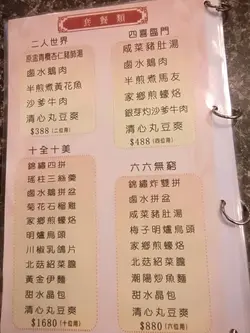 套餐類
二人世界
原盅青欖杏仁豬肺湯
鹵水鵝肉
半煎煮黃花魚
沙爹牛肉
清心丸豆爽
$388 (二位用)
四喜臨門
咸菜豬肚湯
鹵水鵝肉
半煎煮馬友
家鄉煎蠔烙
銀芽灼沙爹牛肉
清心丸豆爽
$488 (四位用)
十全十美
錦繡四拼
瑤柱三絲羹
鹵水鵝拼盆
菊花石榴雞
家鄉煎蠔烙
明爐烏頭
川椒乳鴿片
北菇紹菜膽
黃金伊麵
甜水晶包
清心丸豆爽
$1680 (十位用)
六六無窮
錦繡炸雙拼
鹵水拼盆
咸菜豬肚湯
梅子明爐烏頭
家鄉煎蠔烙
北菇紹菜膽
潮陽炒魚麵
甜水晶包
清心丸豆爽
$880 (六位用)